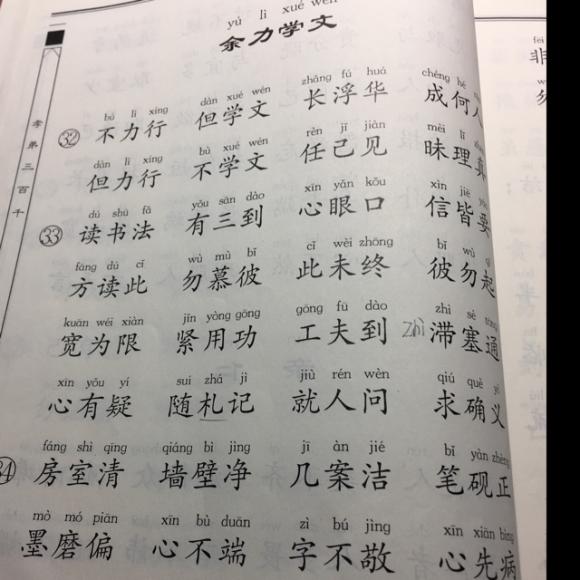 yú lì xué wén
余力学文
bú lì xíng dàn xué wén zhǎng fú huá chéng hé
32 不力行 但学文 长浮华 成何人
dàn lì xíng bù xué wén rèn jǐ jiàn mèi lǐ
但力行 不学文 任己见 昧理真
dú shū fǎ yǒu sān dào xīn yǎn kǒu xìn jiē
33 读书法 有三到 心眼口 信皆要
fāng dú cǐ wù mù bǐ cǐ wèi zhōng bǐ wù
方读此 勿慕彼 此未终 彼勿起
kuān wéi xiàn jǐn yòng gōng gōng fū dào zhì sè
宽为限 紧用功 工夫到 zhì 滞塞通
xīn yǒu yí suí zhá jì jiù rén wèn qiú què yì
心有疑 随札记 就人问 求确义
fáng shì qīng qiáng bì jìng jī àn jié bǐ yàn zhèng
房室清 墙壁净 几案洁 笔砚正
mò mó piān xīn bù duān zì bú jìng xīn xiān bìng
墨磨偏 心不端 字不敬 心先病
孝弟三百千
非
勿